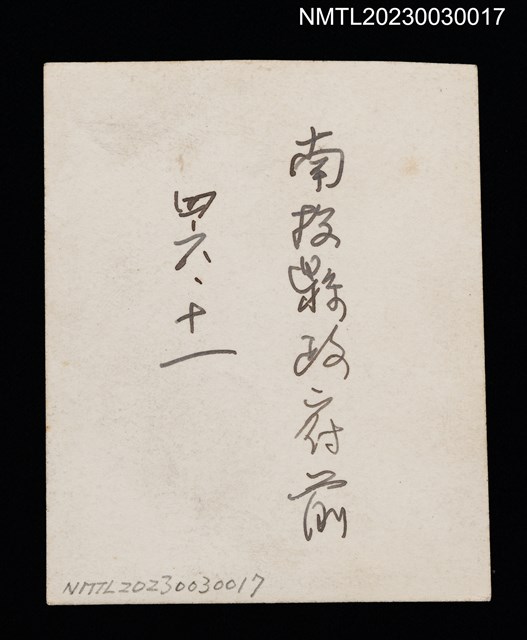 NMTL20230030017
南投縣政府前
四六、十一
NMTL20230030017